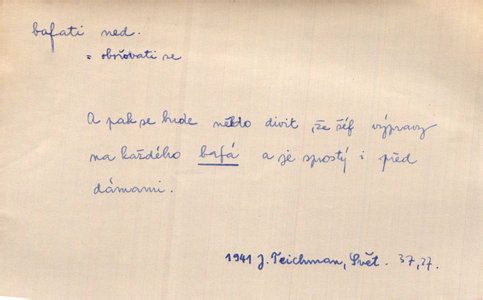 bafati ned.
= obořovati se
A pak se bude někdo divit, že šéf výpravy
na každého bafá a je sprostý i před
dámami.
1941 J. Teichman, Svět. 37, 27.